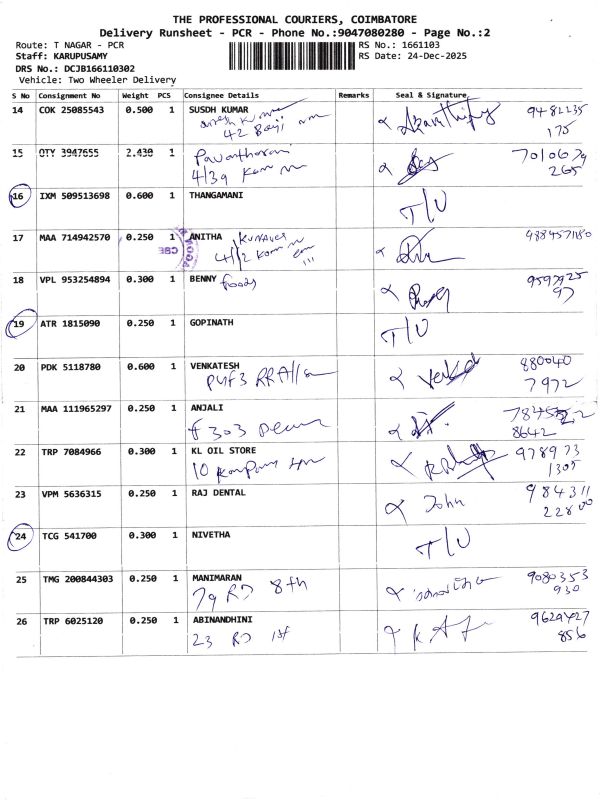 THE PROFESSIONAL COURIERS, COIMBATORE
Delivery Runsheet - PCR - Phone No.:9047080280 - Page No.:2
Route: T NAGAR - PCR RS No.: 1661103
Staff: KARUPUSAMY RS Date: 24-Dec-2025
DRS No.: DCJB166110302
Vehicle: Two Wheeler Delivery
S No Consignment No Weight PCS Consignee Details Remarks Seal & Signature
14 COK 25085543 0.500 1 SUSDH KUMAR
9482235
42
175
15 QTY 3947655 2.430 1
7010679
4/39
265
16 IXM 509513698 0.600 1 THANGAMANI
T/U
17 MAA 714942570 0.250 1 ANITHA
4/12
CBE
18 VPL 953254894 0.300 1 BENNY foods
9597925
97
19 ATR 1815090 0.250 1 GOPINATH
T/U
20 PDK 5118780 0.600 1 VENKATESH
880040
7972
21 MAA 111965297 0.250 1 ANJALI
F 303
8642
22 TRP 7084966 0.300 1 KL OIL STORE
978973
10
1305
23 VPM 5636315 0.250 1 RAJ DENTAL
John
984311
22800
24 TCG 541700 0.300 1 NIVETHA
T/U
25 TMG 200844303 0.250 1 MANIMARAN
9080353
79 RD 8th
930
26 TRP 6025120 0.250 1 ABINANDHINI
9629427
23 RD 1st
856